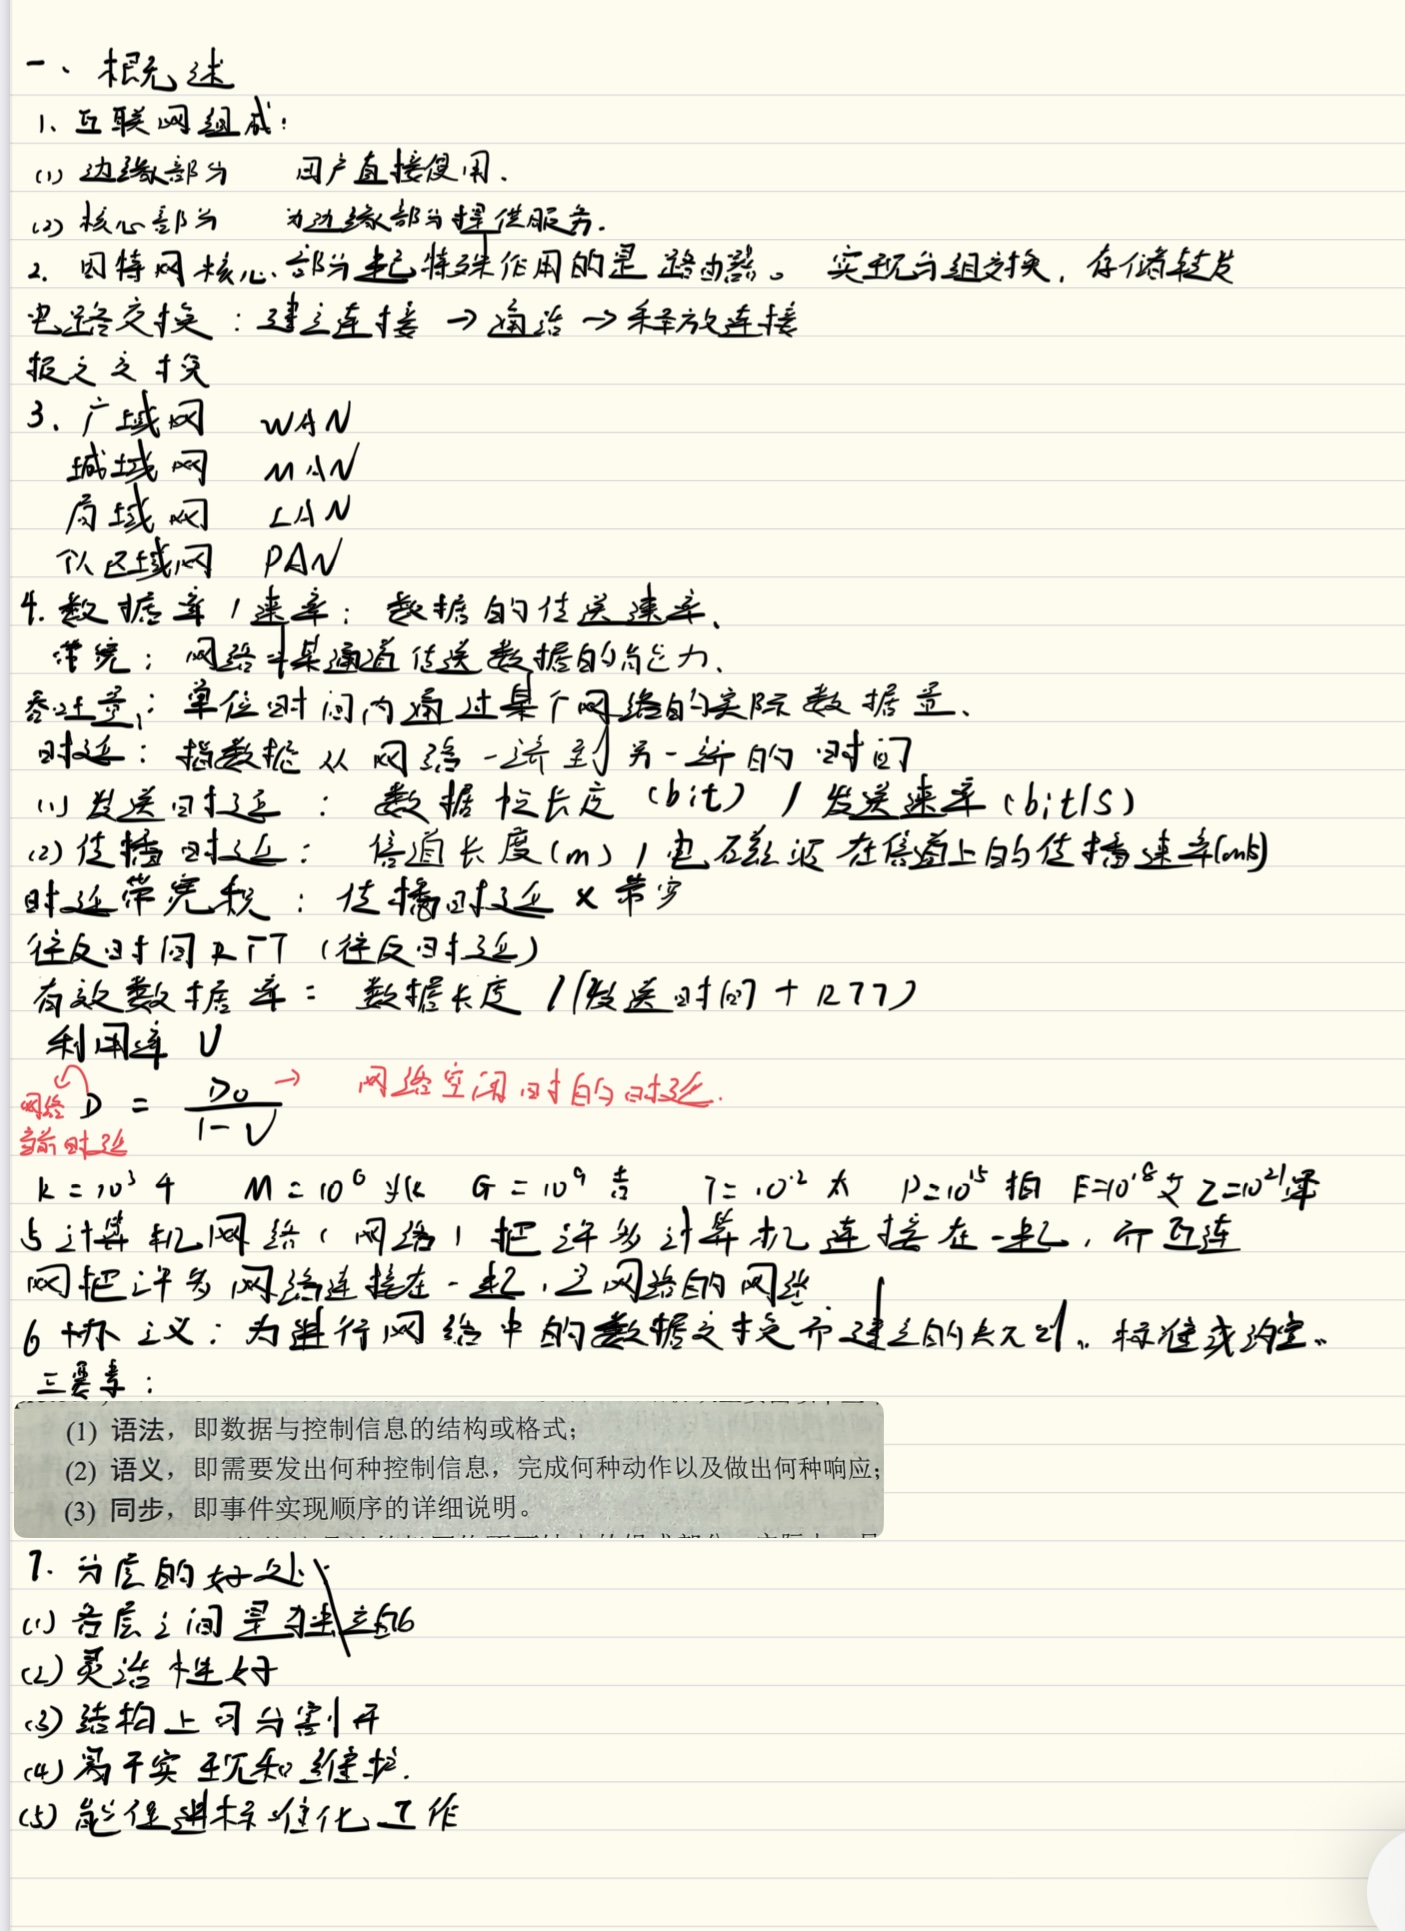 一、概述
1、互联网组成：
(1) 边缘部分 用户直接使用.
(2) 核心部分 为边缘部分提供服务.
2. 因特网核心部分起特殊作用的是路由器。 实现分组交换, 存储转发
电路交换：建立连接→通话→释放连接
报文交换
3. 广域网 WAN
城域网 MAN
局域网 LAN
个人区域网 PAN
4. 数据率/速率：数据的传送速率、
带宽：网络中某通道传送数据的能力、
吞吐量：单位时间内通过某个网络的实际数据量、
时延：指数据从网络一端到另一端的时间
(1) 发送时延：数据帧长度(bit) / 发送速率(bit/s)
(2) 传播时延：信道长度(m) / 电磁波在信道上的传播速率(m/s)
时延带宽积：传播时延 × 带宽
往反时间RTT (往反时延)
有效数据率 = 数据长度 / (发送时间 + RTT)
利用率 U
网络 D = D0/(1-U) → 网络空闲时的时延.
当前时延
k = 10³ 千 M = 10⁶ 兆 G = 10⁹ 吉 T = 10¹² 太 P = 10¹⁵ 拍 E=10¹⁸ 艾 Z=10²¹ 泽
5 计算机网络(网络)把许多计算机连接在一起, 而互连
网把许多网络连接在一起, 是网络的网络
6 协议：为进行网络中的数据交换而建立的规则、标准或约定。
三要素：
(1) 语法，即数据与控制信息的结构或格式；
(2) 语义，即需要发出何种控制信息，完成何种动作以及做出何种响应；
(3) 同步，即事件实现顺序的详细说明。
7. 分层的好处
(1) 各层之间是独立的
(2) 灵活性好
(3) 结构上可分割开
(4) 易于实现和维护.
(5) 能促进标准化工作